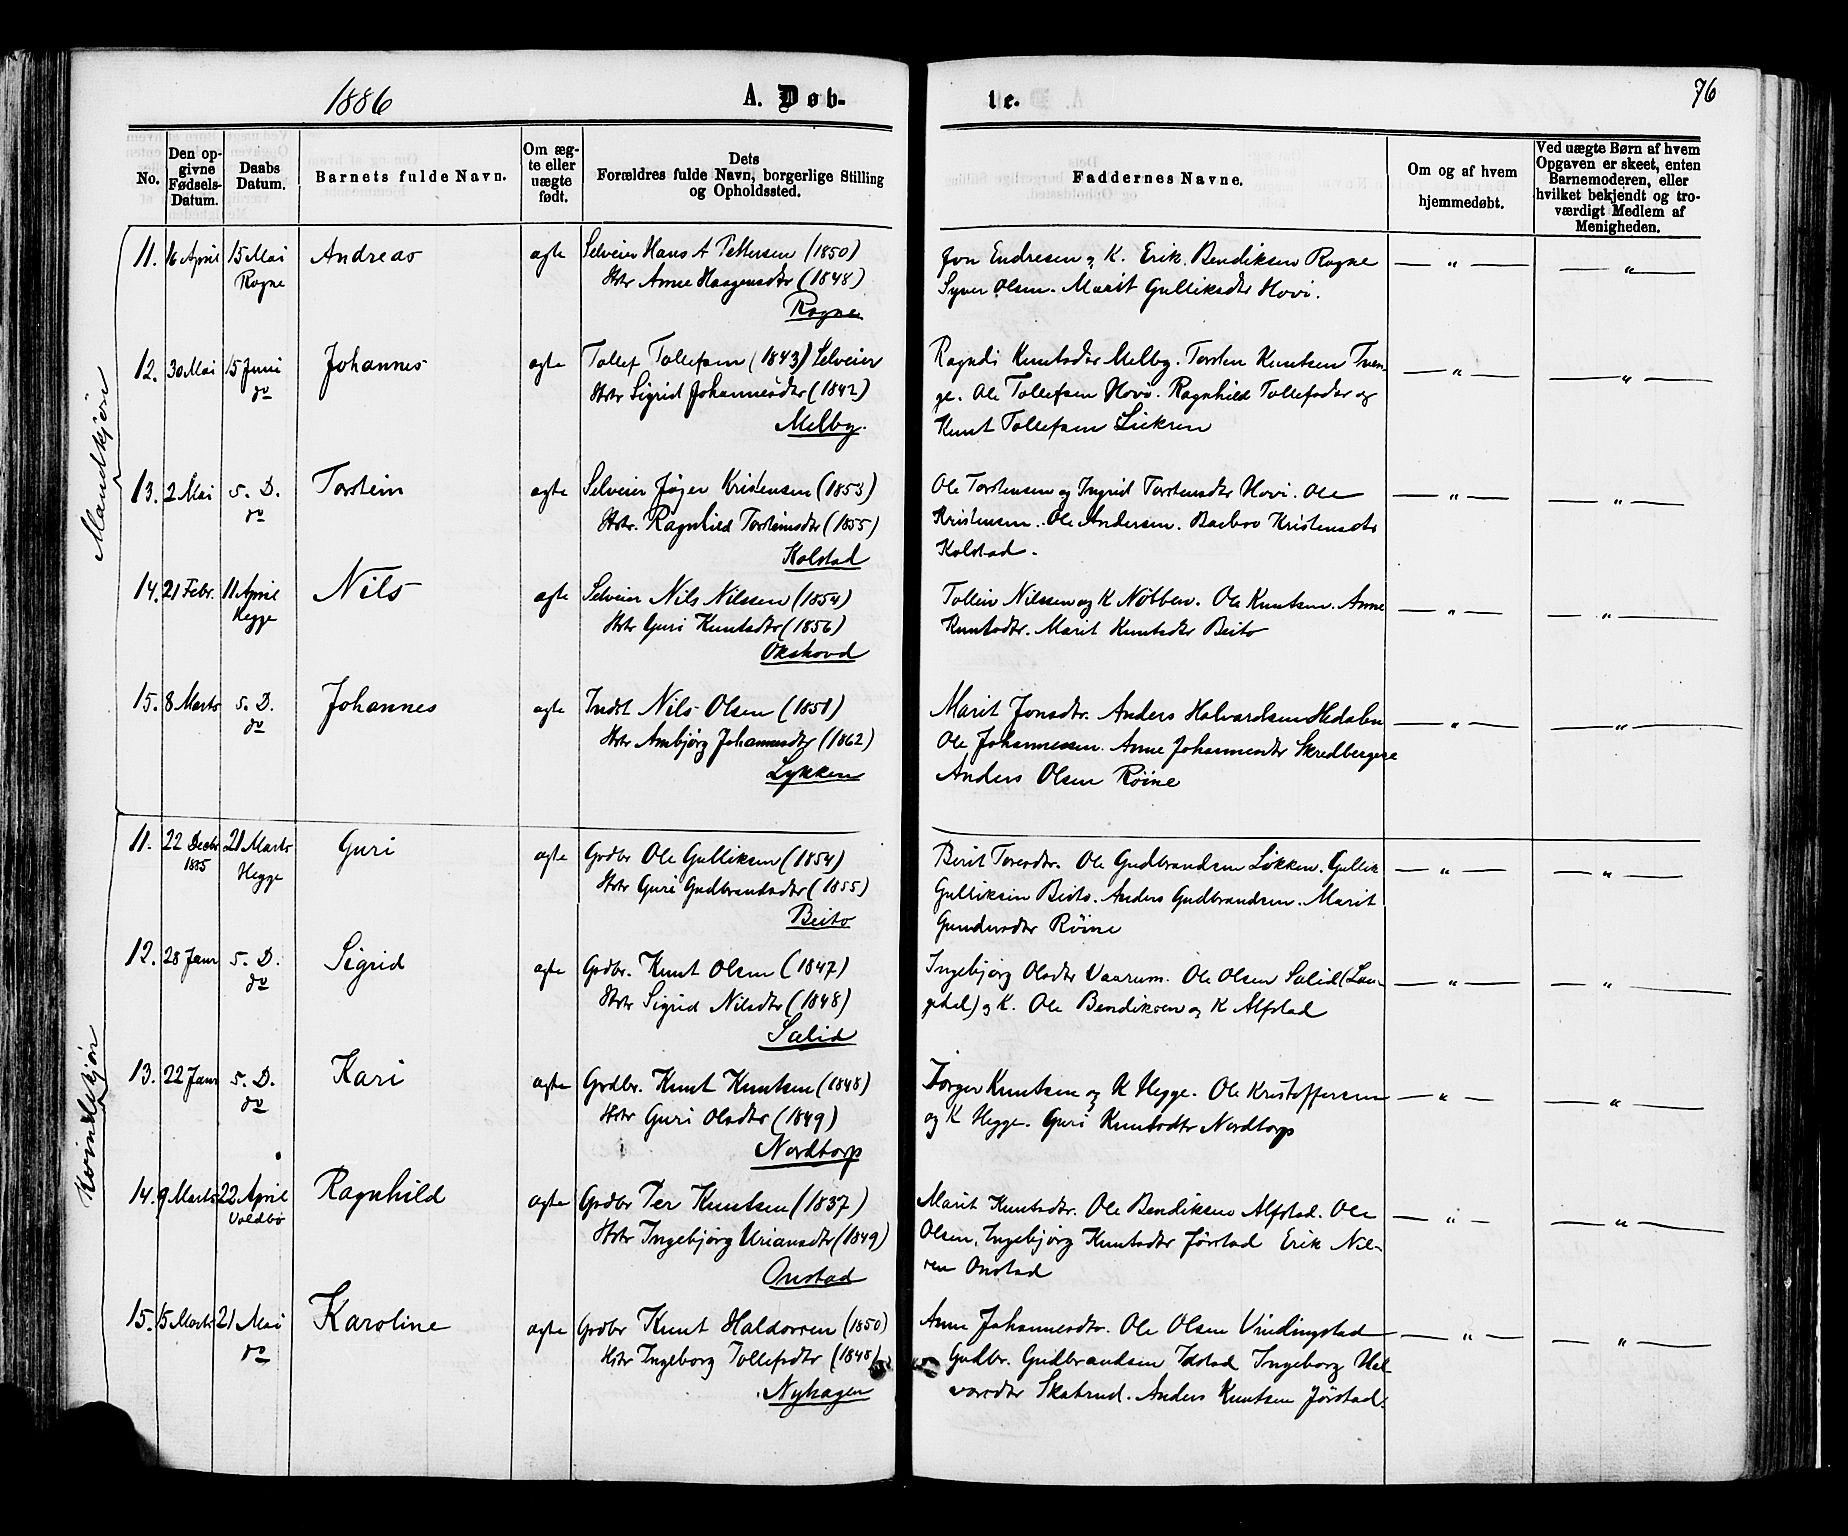 1886
A. Døb-
te.
76
No.
Den opgivne Fødsels-Datum.
Daabs Datum.
Barnets fulde Navn.
Om ægte eller uægte født.
Dets Forældres fulde Navn, borgerlige Stilling og Opholdssted.
Faddernes Navne.
Om og af hvem hjemmedøbt.
Ved uægte Børn af hvem Opgaven er skeet, enten Barnemoderen, eller hvilket bekjendt og troværdigt Medlem af Menigheden.
Mandkjøn
11. 16 April 15 Mai Andreas ægte Selveier Hans A Pettersen (1850) Jon Endresen og K. Erik Bendiksen Rogne — " — — " —
Rogne Hstr Anne Haagensdtr (1848) Syver Olsen. Marit Gulliksdtr Hovi.
Rogne
12. 30 Mai 15 Juni Johannes ægte Tollef Tollefsen (1843) Selveier Ragndi Knutsdtr Melby. Torsten Knutsen Tven- — " — — " —
do Hstr Sigrid Johannesdtr (1842) ge. Ole Tollefsen Hovi. Ragnhild Tollefsdtr og
Melby. Knut Tollefsen
13. 2 Mai s. D. Torstein ægte Selveier Jøger Kristensen (1853) Ole Torstensen og Ingrid Torstensdtr Hovi. Ole — " — — " —
do Hstr. Ragnhild Torsteinsdtr (1855) Kristensen. Ole Andersen. Barbro Kristensdtr
Kolstad Kolstad.
14. 21 Febr. 11 April Nils ægte Selveier Nils Nilssen (1854) Tollev Nilssen og K Nøbben. Ole Knutsen. Anne — " — — " —
Hegge Hstr Guri Knutsdtr (1856) Knutsdtr. Marit Knutsdtr Beito
Okshovd
15. 8 Marts s. D. Johannes ægte Indst Nils Olsen (1851) Marit Jonsdtr. Anders Halvardsen Hedalen — " — — " —
do Hstr Ambjørg Johannesdtr (1862) Ole Johannessen. Anne Johannesdtr Skredbergene
Lykken Anders Olsen Røine
Kvindekjøn
11. 22 Decbr 21 Marts Guri ægte Grdbr Ole Gulliksen (1854) Berit Toresdtr. Ole Gudbrandsen Løkken. Gullik — " — — " —
1885 Hegge Hstr Guri Gudbrandsdtr (1855) Gulliksen Beito. Anders Gudbrandsen. Marit
Beito Gundersdtr Røine
12. 28 Janr s. D. Sigrid ægte Grdbr. Knut Olsen (1847) Ingebjørg Olsdtr Vaarum. Ole Olsen Sælid (Lan- — " — — " —
do Hstr Sigrid Nilsdtr (1848) gehel) og K. Ole Bendiksen og K Alfstad
Sælid
13. 22 Janr s. D. Kari ægte Grdbr. Knut Knutsen (1848) Torger Knutsen og K Hegge. Ole Kristoffersen — " — — " —
do Hstr Guri Olsdtr (1849) og K Hegge. Guri Knutsdtr Nordtorp
Nordtorp
14. 9 Marts 22 April Ragnhild ægte Grdbr Per Knutsen (1837) Marit Knutsdtr. Ole Bendiksen Alfstad. Ole — " — — " —
Voldbo Hstr Ingebjørg Uriansdtr (1849) Olsen, Ingebjørg Knutsdtr Jørstad Erik Nil-
Onstad sen Onstad
15. 15 Marts 21 Mai Karoline ægte Grdbr Knut Haldorsen (1850) Anne Johannesdtr. Ole Olsen Vindingstad — " — — " —
do Hstr Ingeborg Tollefsdtr (1848) Gudbr. Gudbrandsen Idstad Ingeborg Hal-
Nyhagen vorsdtr Skatrud. Anders Knutsen Jørstad.